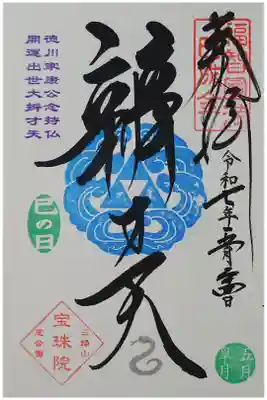 奉拝
令和七年
五月
皐月
辨才天
徳川家康公念持仏
開運出世大辨才天
巳の日
三縁山
宝珠院
芝公園